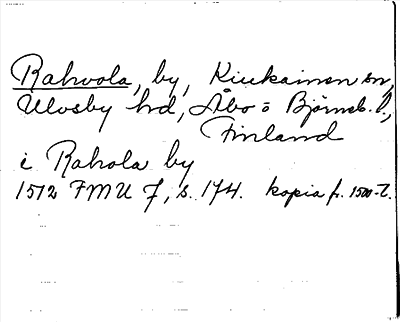 Rahvola, by, Kiukainen sn,
Ulvsby hd, Åbo o Björneb. l.,
Finland
i Rahola by
1512 FMU 7, s. 174. kopia fr. 1500-t.